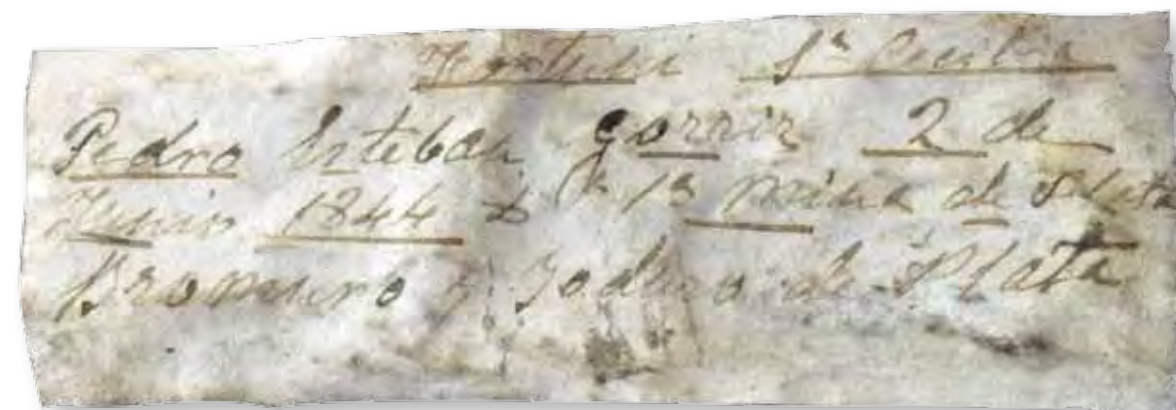 Sª Cecilia
Pedro Esteban Gorriz 2 de
Junio 1844 1ª mina de Plata
Bromuro y Joduro de Plata